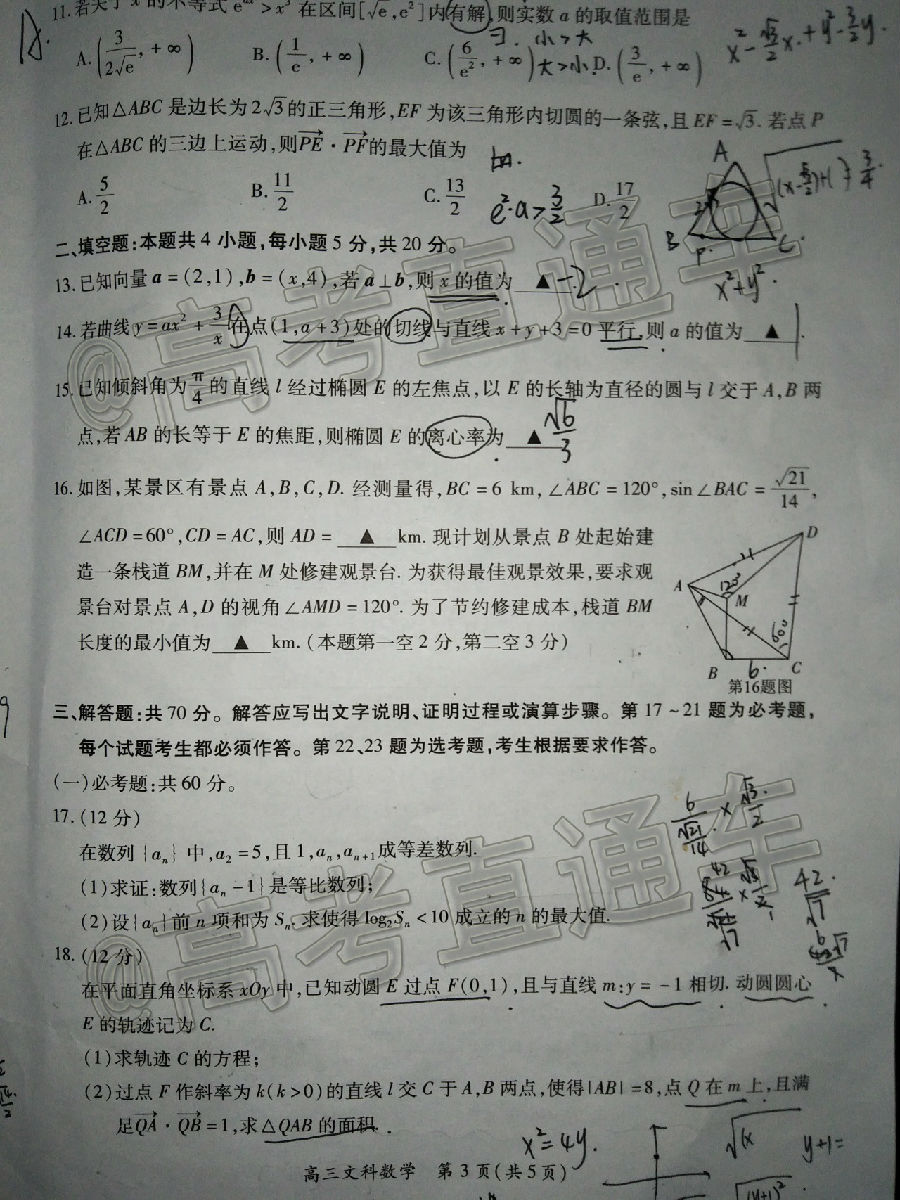 11.若关于 x 的不等式 e^{ax} > x^3 在区间[√e,e^2]内有解,则实数 a 的取值范围是
A.(3/(2√e),+∞) B.(1/e,+∞) C.(6/e^2,+∞) D.(3/e,+∞)
ヨ. 小>大
大>小
x^2-√3/2x.+y^2-3/2y.
12.已知△ABC 是边长为 2√3 的正三角形,EF 为该三角形内切圆的一条弦,且 EF=√3. 若点 P
在△ABC 的三边上运动,则PE·PF的最大值为
A.5/2 B.11/2 C.13/2 D.17/2
e^2·a>3/2
A
B P. C.
x^2+y^2
二、填空题:本题共 4 小题,每小题 5 分,共 20 分。
13.已知向量 a=(2,1),b=(x,4),若 a⊥b,则 x 的值为 ▲ -2
14.若曲线 y=ax^2+3/x 在点(1,a+3)处的切线与直线 x+y+3=0 平行,则 a 的值为 ▲ 1.
15.已知倾斜角为π/4的直线 l 经过椭圆 E 的左焦点,以 E 的长轴为直径的圆与 l 交于 A,B 两
点,若 AB 的长等于 E 的焦距,则椭圆 E 的离心率为 ▲ √6/3
16.如图,某景区有景点 A,B,C,D. 经测量得,BC=6 km,∠ABC=120°,sin∠BAC=√21/14,
∠ACD=60°,CD=AC,则 AD= ▲ km. 现计划从景点 B 处起始建
造一条栈道 BM,并在 M 处修建观景台. 为获得最佳观景效果,要求观
景台对景点 A,D 的视角∠AMD=120°. 为了节约修建成本,栈道 BM
长度的最小值为 ▲ km. (本题第一空 2 分,第二空 3 分)
D
A
120°
M
60°
B 6 C
第16题图
三、解答题:共 70 分。解答应写出文字说明、证明过程或演算步骤。第 17~21 题为必考题,
每个试题考生都必须作答。第 22、23 题为选考题,考生根据要求作答。
(一)必考题:共 60 分。
17.(12 分)
在数列{a_n}中,a_2=5,且 1,a_n,a_{n+1}成等差数列.
(1)求证:数列{a_n-1}是等比数列;
(2)设{a_n}前 n 项和为 S_n,求使得 log_2S_n<10 成立的 n 的最大值.
18.(12 分)
在平面直角坐标系 xOy 中,已知动圆 E 过点 F(0,1),且与直线 m:y=-1 相切. 动圆圆心
E 的轨迹记为 C.
(1)求轨迹 C 的方程;
(2)过点 F 作斜率为 k(k>0)的直线 l 交 C 于 A,B 两点,使得|AB|=8,点 Q 在 m 上,且满
足QA·QB=1,求△QAB 的面积.
x^2=4y.
y+1=
高三文科数学 第 3 页(共 5 页)
@高考直通车
@高考直通车